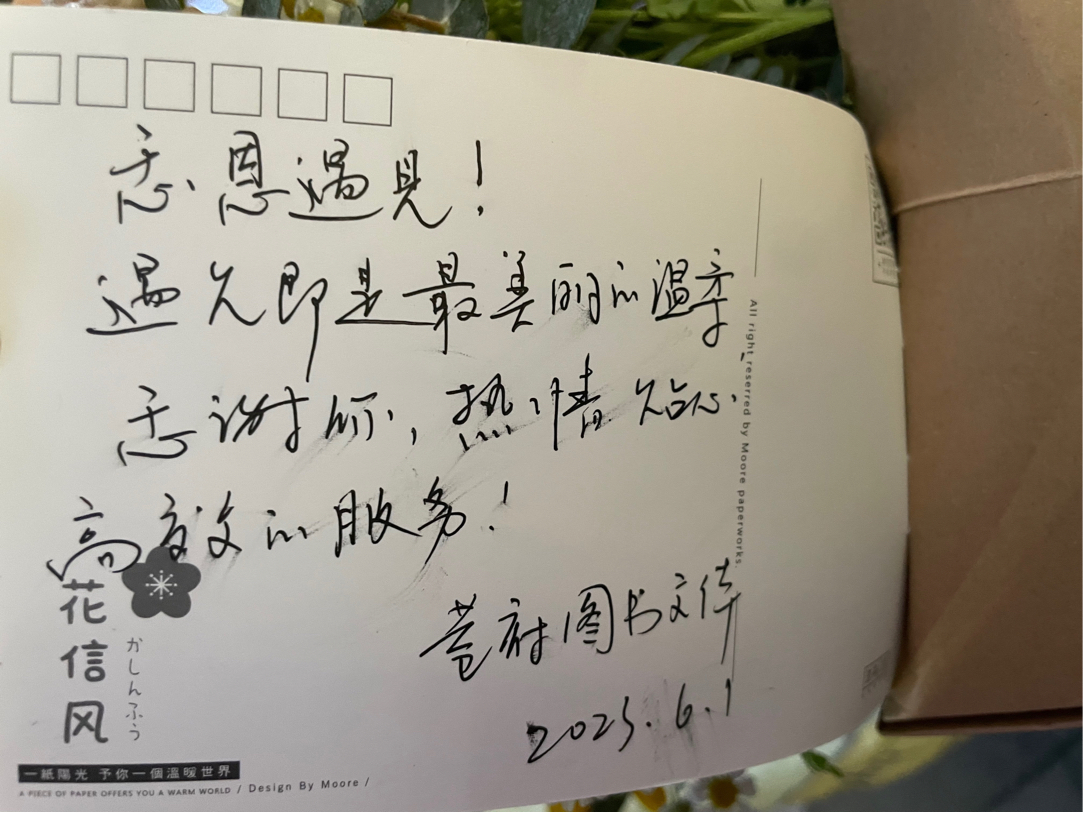 感恩遇见!
遇见即是最美丽的温柔,
感谢,热情贴心
高效的服务!
府图书文
2023.6.1
花信风
かしんふう
一紙陽光 予你一個溫暖世界
A PIECE OF PAPER OFFERS YOU A WARM WORLD / Design By Moore /
All right reserred by Moore paperworks.